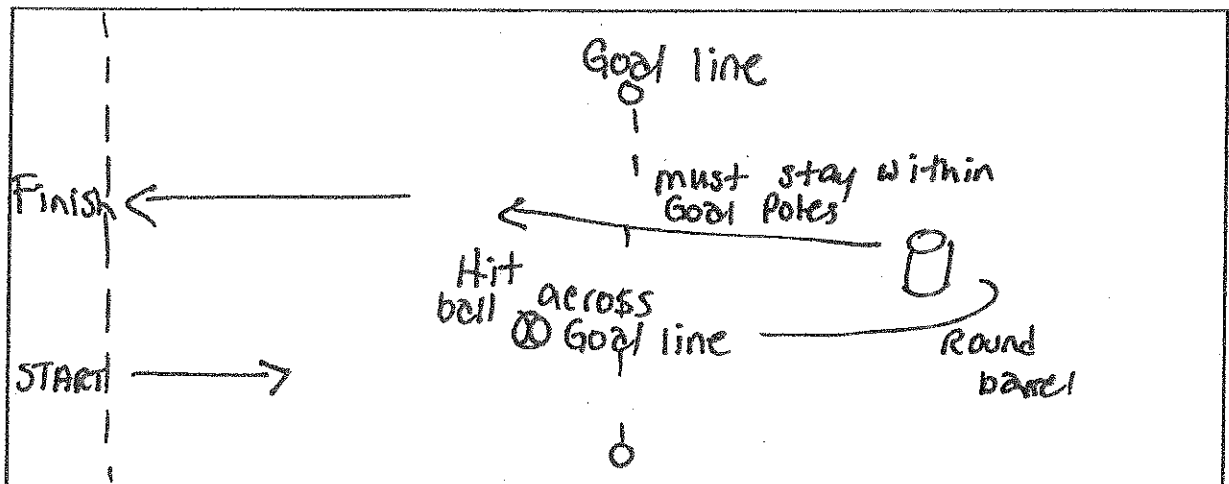 Goal line
must stay within
Goal Poles
Finish
Hit
ball across
Goal line
Round
barrel
START